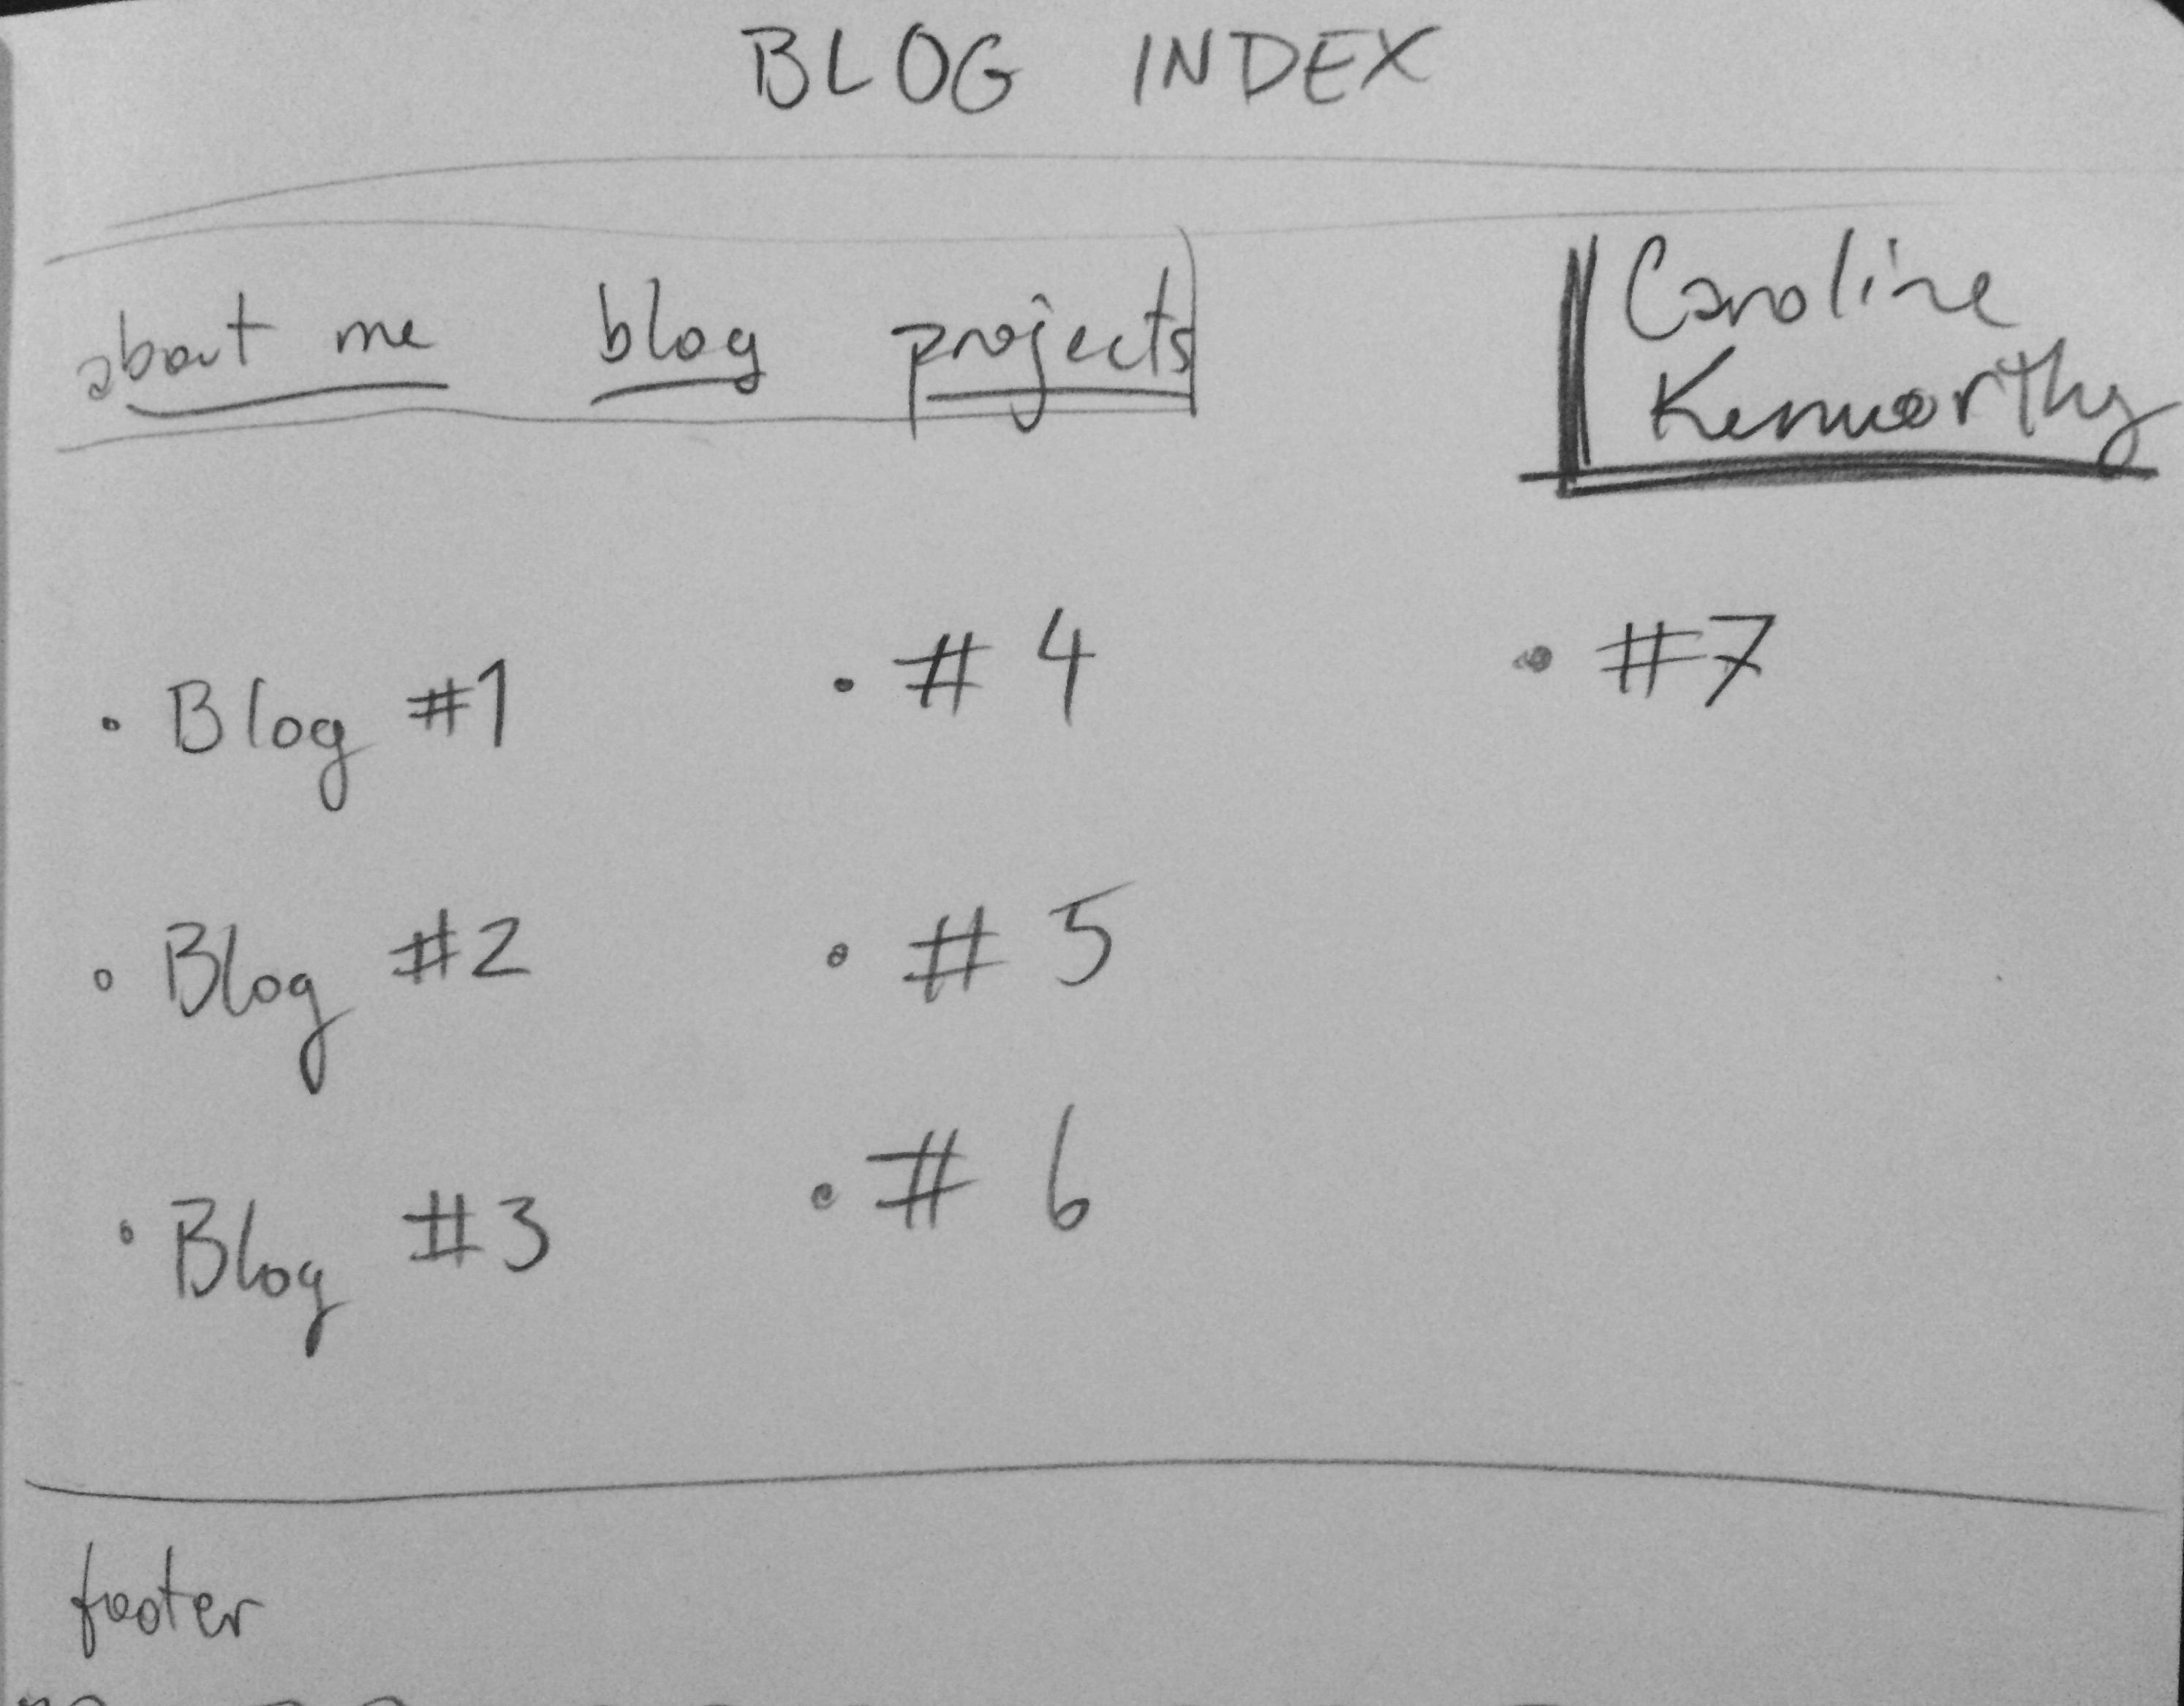 BLOG INDEX
about me blog projects
Caroline
Kenworthy
• Blog #1
• Blog #2
• Blog #3
• # 4
• # 5
• # 6
• #7
footer